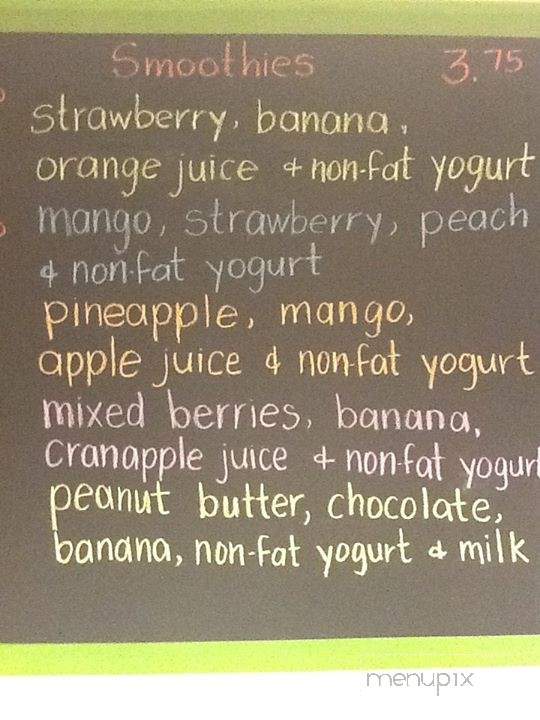 Smoothies 3.75
strawberry, banana,
orange juice + non-fat yogurt
mango, strawberry, peach
& non-fat yogurt
pineapple, mango,
apple juice & non-fat yogurt
mixed berries, banana,
Cranapple juice + non-fat yogurt
peanut butter, chocolate,
banana, non-fat yogurt & milk
menupix